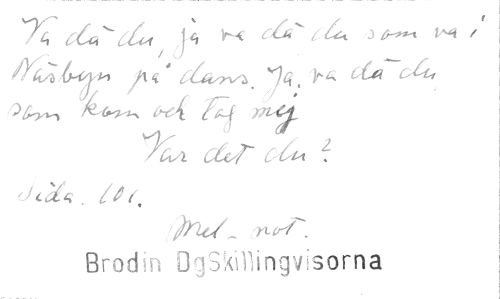 Va då du, ja va då du som va i
Näsbyn på dans. Ja, va då du
som kom och tog mej
Var det du?
Sida. 101.
Mel. not.
Brodin DgSkillingvisorna